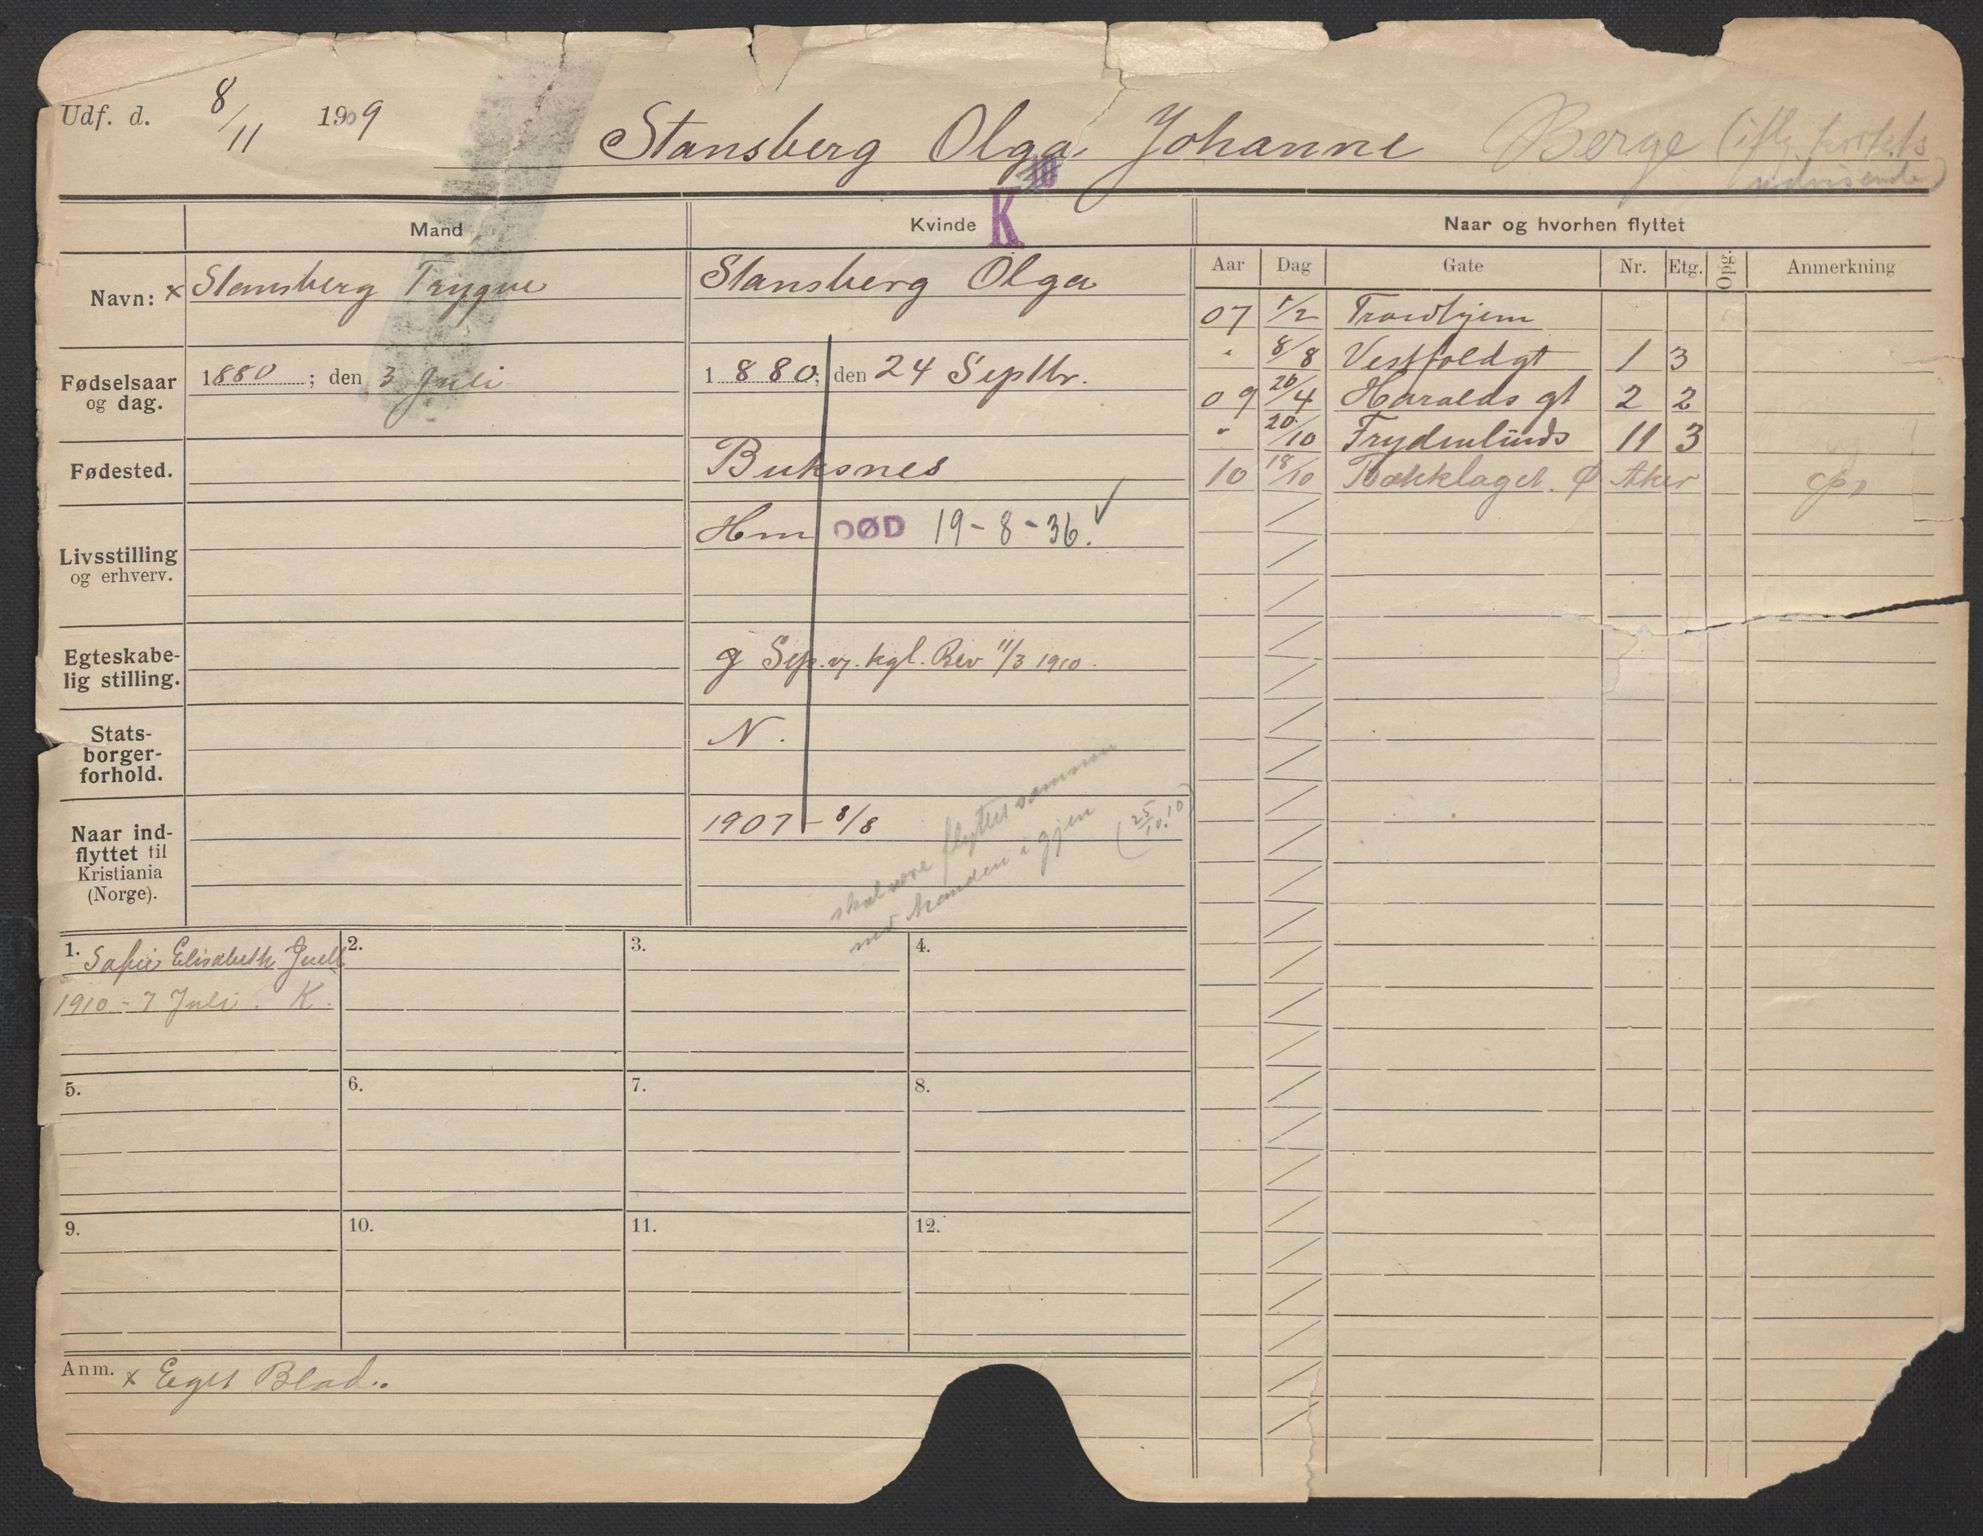 Udf. d. 8/11 1909
Stansberg Olga Johanne Berge
Mand
Kvinde K
Naar og hvorhen flyttet
Navn: x Stansberg Trygve
Stansberg Olga
Aar Dag Gate Nr. Etg. Opg. Anmerkning
07 1/2 Trondhjem
" 8/8 Vestfoldgt 1 3
09 26/4 Haralds gt 2 2
" 20/10 Frydenlunds 11 3
10 18/10 Bækklaget. Ø Aker
Fødselsaar og dag.
1880; den 3 Juli
1880; den 24 Septbr.
Fødested.
Buksnes
Livsstilling og erhverv.
Hm DØD 19-8-36. ✓
Egteskabe-
lig stilling.
g Sep. v. kgl. Bev 11/3 1910.
Stats-
borger-
forhold.
N.
Naar ind-
flyttet til
Kristiania
(Norge).
1907 - 8/8
skal være flyttet sammen
med Manden igjen (25/10.10)
1. Sofie Elisabeth Juell
1910 - 7 Juli. K.
2.
3.
4.
5.
6.
7.
8.
9.
10.
11.
12.
Anm. x Eget Blad..